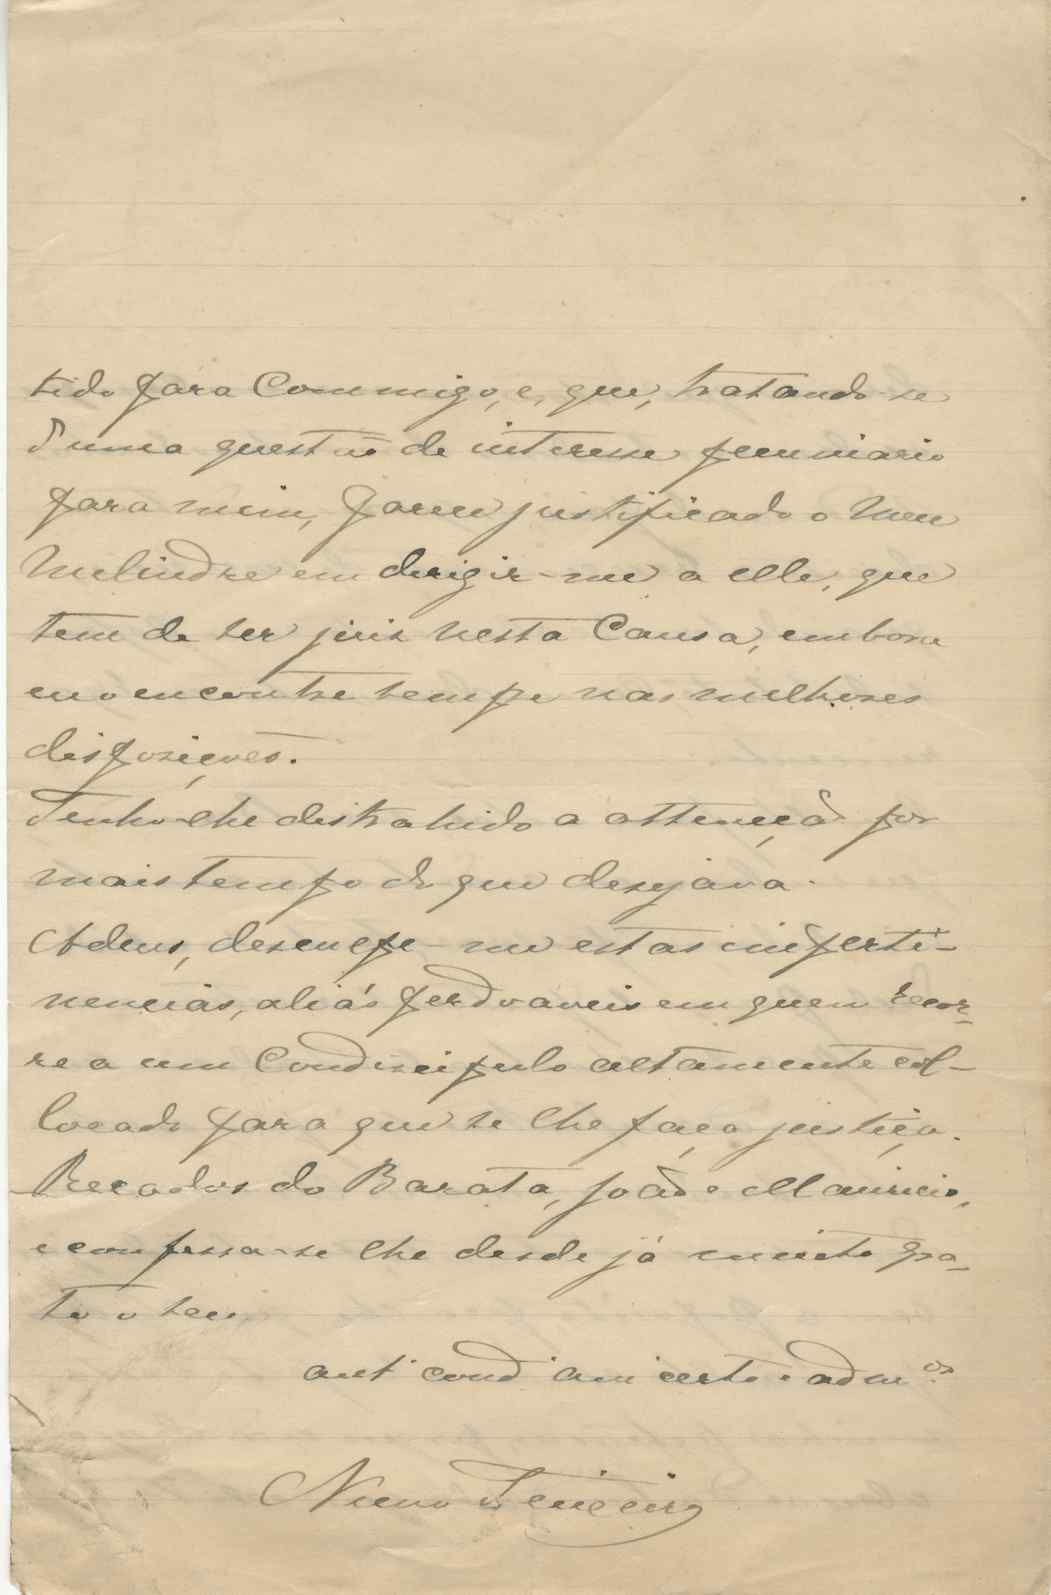 tido para Commigo, e, que, tratando-se
d'uma questão de interesse pecuniario
para mim, parece justificado o meu
melindre em derigir-me a elle, que
tem de ser juiz nesta Causa, embora
eu o encontre sempre nas melhores
disposições.
Tenho-lhe distrahido a attenção por
mais tempo do que desejava.
Adeus, desculpe-me estas imperti-
nencias, aliás perdoaveis em quem recor-
re a um Condiscipulo altamente col-
locado para que se lhe faça justiça.
Recados do Barata, João e Mauricio,
e confessa-se lhe desde já muito gra-
to o seu
ant cond am certo e adm.or
Nuno Teixeira